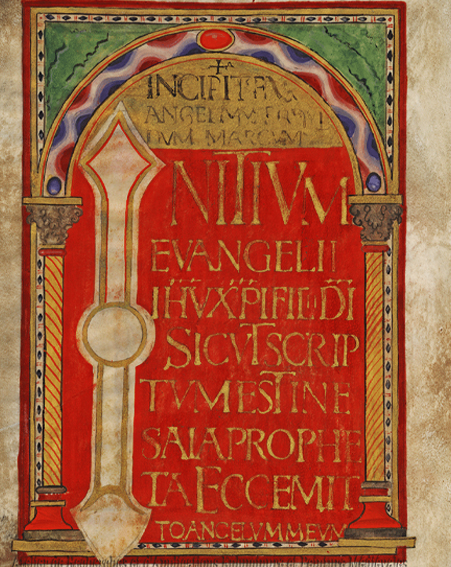 INCIPIT EV
ANGELIVM SECVN
DVM MARCVM
INITIVM
EVANGELII
IH̅V X̅P̅I FILII D̅I
SICVT SCRIP
TVM EST IN E
SAIA PROPHE
TA ECCE MIT
TO ANGELVM MEVM